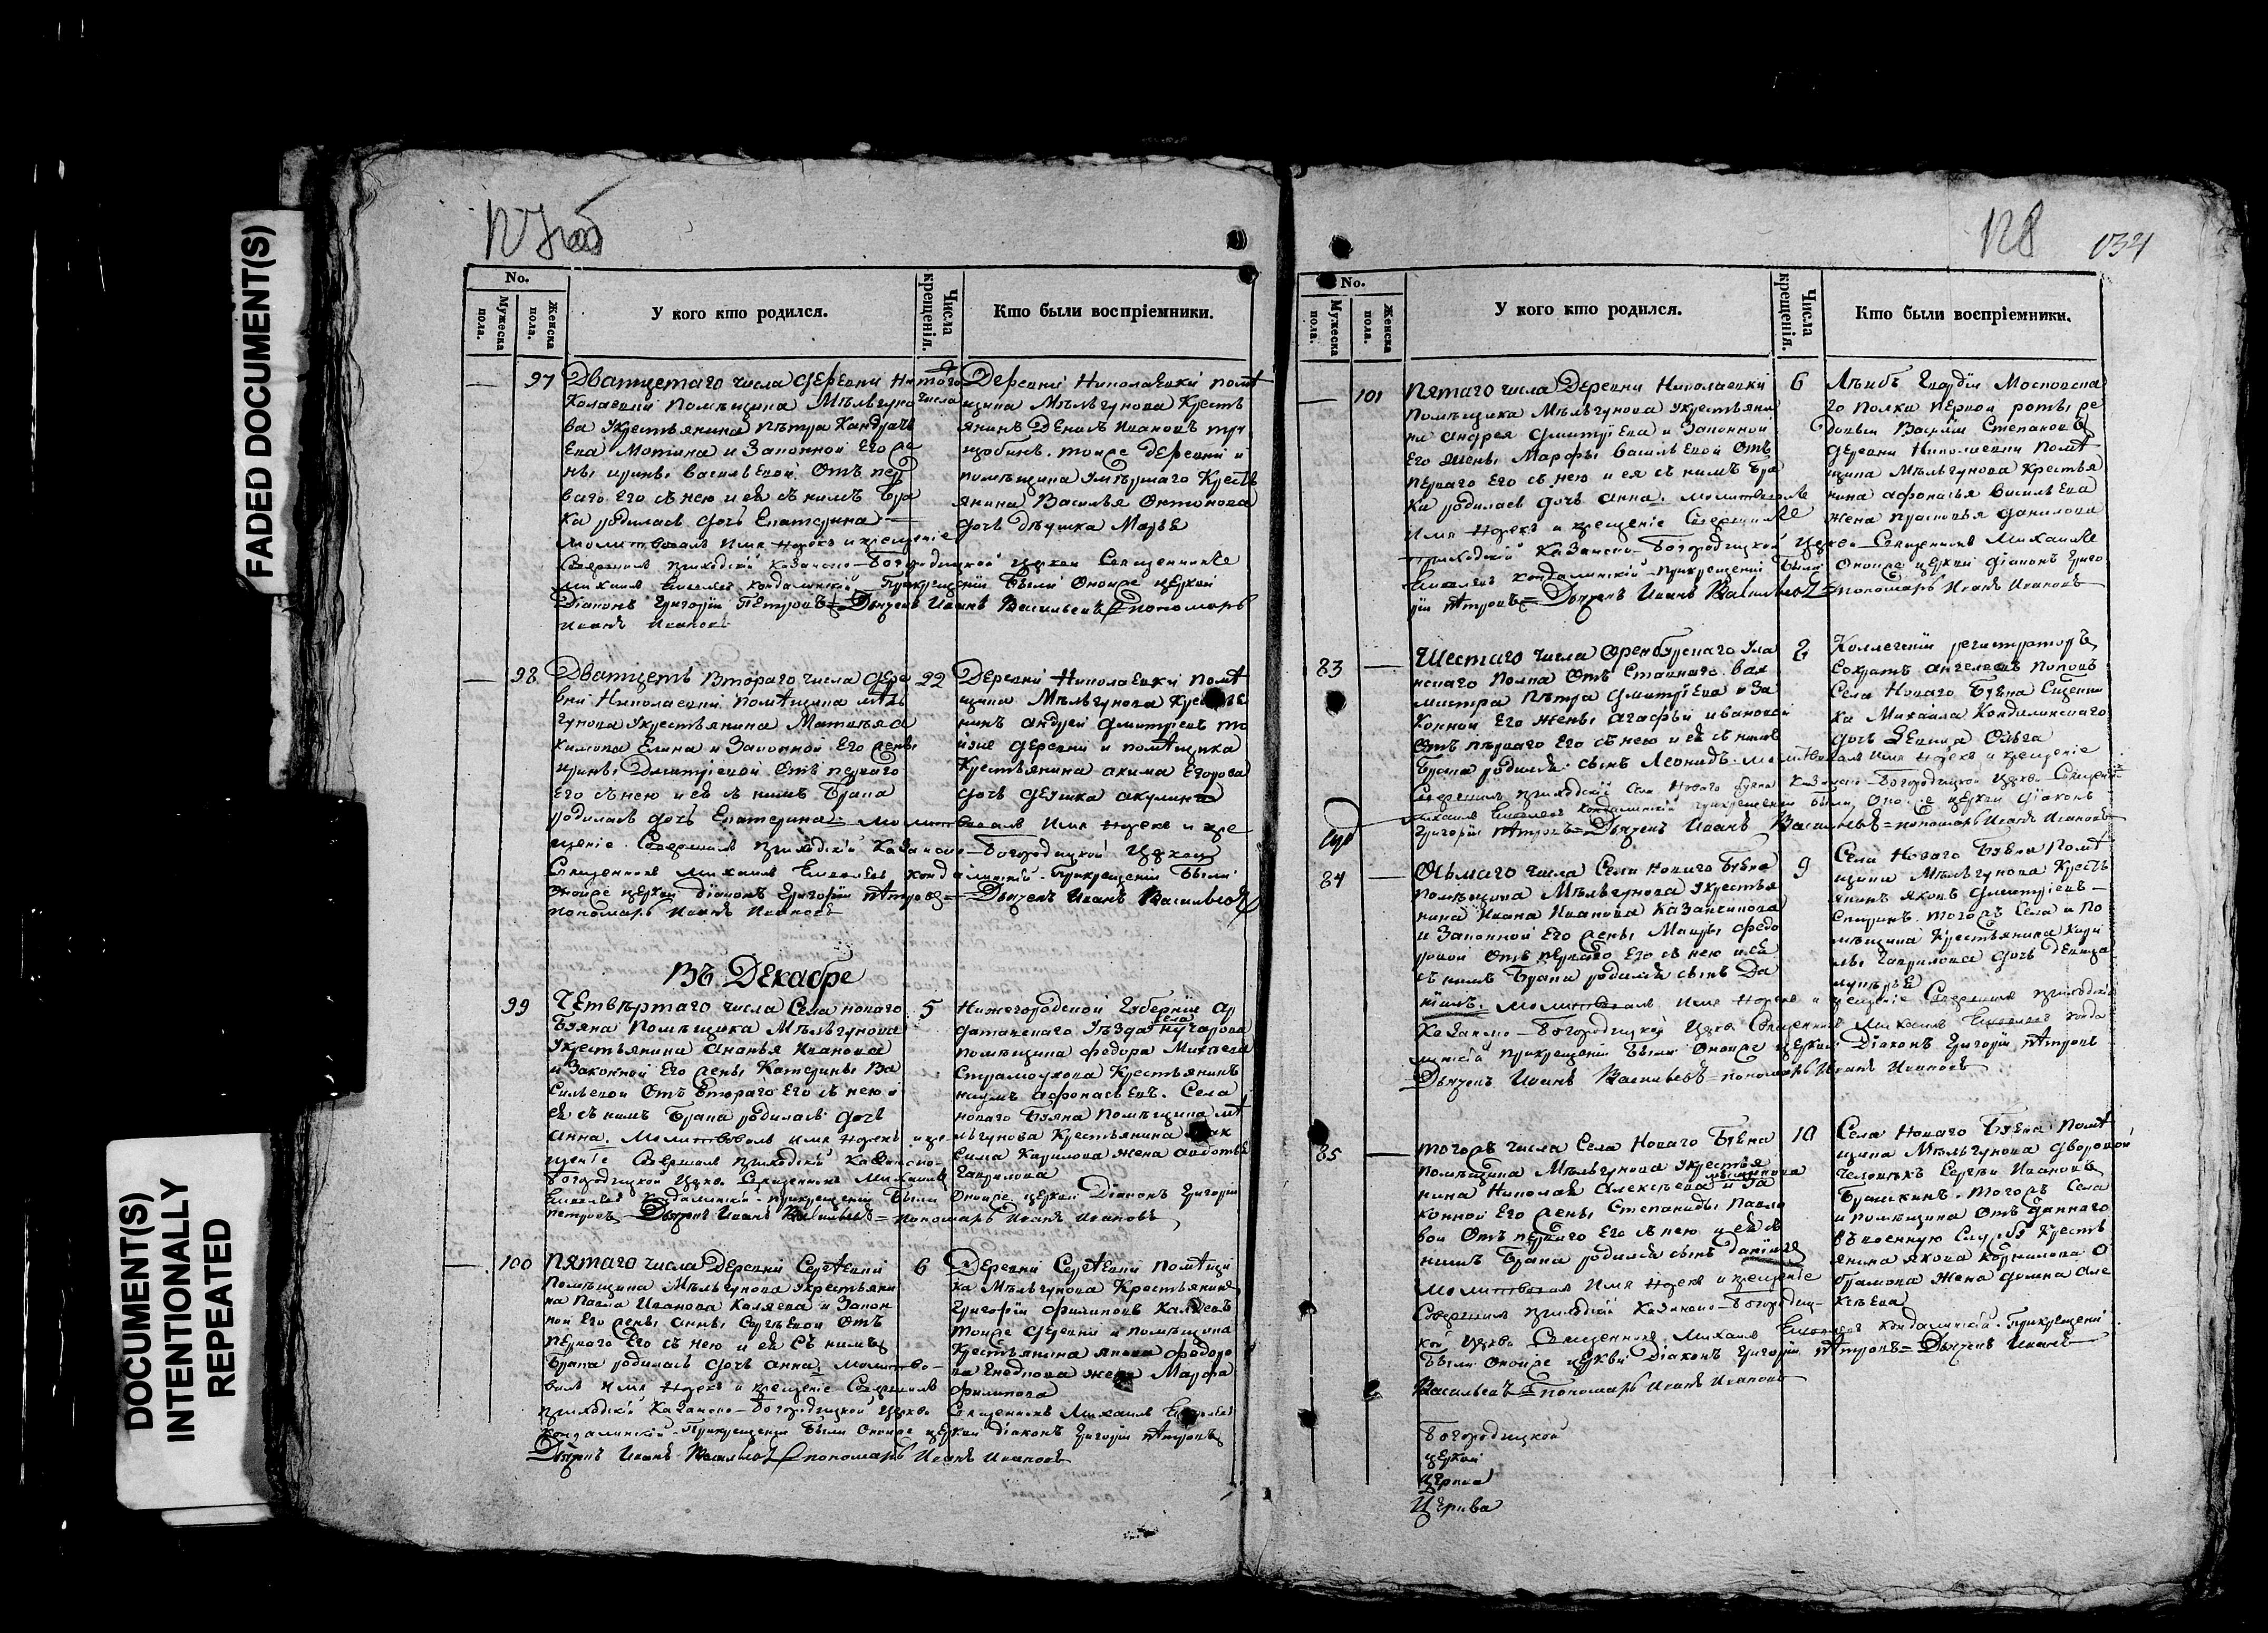 FADED DOCUMENT(S)
DOCUMENT(S)
INTENTIONALLY
REPEATED
No.
Мужеска пола.
Женска пола.
У кого кто родился.
Числа крещенія.
Кто были воспріемники.
97
Дватцетаго числа деревни Ни
колаевки помѣщика Мѣльгуно
ва укрестьянина Пѣтра Кандрать
ева Мотина и Законной Его же
ны ирины васильевой Отъ пер
ваго Его сънею и ея съ нимъ бра
ка родилась дочь Екатерина
молитвовалъ Имя нарекъ и крещеніе
Совершилъ приходскій Казанско-Богородицкой церкви Священникъ
Михаилъ Кондалинскій Прикрещеніи были Оной же церкви
Діаконъ Григорій Петровъ = Дьячекъ Иванъ Васильевъ = пономарь
Иванъ Ивановъ
того
числа
Деревни Николаевки помѣ
щика Мѣльгунова Кресть
янинъ Денисъ Ивановъ
тойже деревни и
помѣщика умершаго Кресть
янина Василья Онтонова
дочь дѣушка Марья
98
Дватцеть Втораго числа дере
вни Николаевки помѣщика Мѣль
гунова укрестьянина Матвѣя а
кимова Елина и Законной Его жены
ирины Дмитріевой Отъ перваго
Его сънею и ея съ нимъ брака
родилась дочь Екатерина молитвовалъ Имя нарекъ и кре
щеніе Совершилъ приходскій Казанско-Богородицкой Церкви
Священникъ Михаилъ Кондалинскій Прикрещеніи были
Онойже церкви діаконъ Григорій Петровъ = Дьячекъ Иванъ Васильевъ
пономарь Иванъ Ивановъ
22
Деревни Николаевки помѣ
щика Мѣльгунова Крестья
нинъ андрей дмитріевъ то
йже деревни и помѣщика
Крестьянина акима Егорова
дочь деушка акулина
Въ Декабре
99
Четвертаго числа Села новаго
Буяна помѣщика Мѣльгунова
укрестьянина Ананья Иванова
и Законной Его жены Катерины Ва
сильевой Отъ Втораго Его сънею и
ея съ нимъ брака родилась дочь
анна. Молитвовалъ имя нарекъ и кре
щеніе Совершилъ приходскій Казанско-
Богородицкой Церкви Священникъ Михаилъ
Кондалинскій прикрещеніи были Онойже церкви Діаконъ Григорій
Петровъ = Дьячекъ Иванъ Васильевъ = пономарь Иванъ Ивановъ
5
Нижегородской Губерніи Ар
датовскаго Уѣзда села
помѣщика федора Михаева
Крестьянинъ
наумъ афонасьевъ. Села
новаго Буяна помѣщика мѣ
льгунова Крестьянина Мак
сима Карилова жена авдотья
Гаврилова
100
Пятаго числа Деревни Сергѣевки
Помѣщика Мѣльгунова укрестьяни
на Павла Иванова Каляева и Закон
ной Его жены анны Сергѣевой Отъ
перваго Его сънею и ея съ нимъ
брака родилась дочь анна. молитво-
валъ Имя нарекъ и крещеніе Совершилъ
приходскій Казанско-Богородицкой Церкви Священникъ Михаилъ
Кондалинскій Прикрещеніи были Онойже церкви діаконъ Григорій Петровъ
Дьячекъ Иванъ Васильевъ = пономарь Иванъ Ивановъ
6
Деревни Сергѣевки помѣщи
ка Мѣльгунова Крестьянинъ
Григорій Филиповъ Каляевъ
тойже деревни и помѣщика
Крестьянина якова федоро
ва жена Марфа
филипова
128
No.
Мужеска пола.
Женска пола.
У кого кто родился.
Числа крещенія.
Кто были воспріемники.
101
Пятаго числа Деревни Николаевки
помѣщика Мѣльгунова укрестьяни
на андрея дмитріева и Законной
Его жены Марфы Васильевой Отъ
перваго Его сънею и ея съ нимъ бра
ка родилась дочь анна. молитвовалъ
Имя нарекъ и крещеніе Совершилъ
приходскій Казанско-Богородицкой Церкви Священникъ Михаилъ
Кондалинскій прикрещеніи были Онойже церкви діаконъ Григо
рій Петровъ = Дьячекъ Иванъ Васильевъ = пономарь Иванъ Ивановъ
6
Лѣибъ Гвардіи Московска
го полка первой роты ре
Василій Степановъ
деревни Николаевки помѣ
щика Мѣльгунова Крестья
нина афонасья Васильева
жена прасковья данилова
83
Шестаго числа Оренбурскаго Ула
нскаго полка Отъ Ставнаго вах
мистра Пѣтра дмитріева и За
конной Его жены агафьи ивановой
Отъ перваго Его сънею и ея съ нимъ
брака родился сынъ Леонидъ. молитвовалъ Имя нарекъ и крещеніе
Совершилъ приходскій Села Новаго Буяна Казанско-Богородицкой Церкви Священникъ
Михаилъ Кондалинскій прикрещеніи были Онойже церкви діаконъ
Григорій Петровъ = Дьячекъ Иванъ Васильевъ = пономарь Иванъ Ивановъ
8
Коллегскій регистраторъ
Сократъ Поповъ
Села Новаго Буяна Сщенни
ка Михаила Кондалинскаго
дочь девица Ольга
84
Осьмаго числа Села Новаго Буяна
Помѣщика Мѣльгунова укрестья
нина Ивана Иванова Казанчикова
и Законной Его жены Мавры федо
ровой Отъ перваго Его сънею и ея
съ нимъ брака родился сынъ Да
нiилъ. молитвовалъ Имя нарекъ и крещеніе Совершилъ приходскій
Казанско-Богородицкой Церкви Священникъ Михаилъ Конда
линскій прикрещеніи были Онойже церкви Діаконъ Григорій Петровъ
Дьячекъ Иванъ Васильевъ = пономарь Иванъ Ивановъ
9
Села Новаго Буяна Помѣ
щика Мѣльгунова Кресть
янинъ Яковъ Дмитріевъ
тогожъ Села и по
мѣщика Крестьянина Кири
лы Гаврилова дочь девица
85
тогожъ числа Села Новаго Буяна
помѣщика Мѣльгунова укрестья
нина Николая Алексѣева Мѣльникова и За
конной Его жены Степаниды Павло
вой Отъ перваго Его сънею и ея съ
нимъ брака родился сынъ даніилъ
молитвовалъ Имя нарекъ и крещеніе
Совершилъ приходскій Казанско-Богородиц-
кой Церкви Священникъ Михаилъ Кондалинскій Прикрещеніи
были Онойже церкви Діаконъ Григорій Петровъ = Дьячекъ Иванъ
Васильевъ = пономарь Иванъ Ивановъ
10
Села Новаго Буяна Помѣ
щика Мѣльгунова дворовой
человѣкъ Сергѣй Ивановъ
Брашкинъ. тогожъ Села
и помѣщика Отъ даннаго
въ военную Службу Кресть
янина Якова Корнилова О
брамова жена домна але
ксѣева
Богородицкой
церкви
Церква
Церква